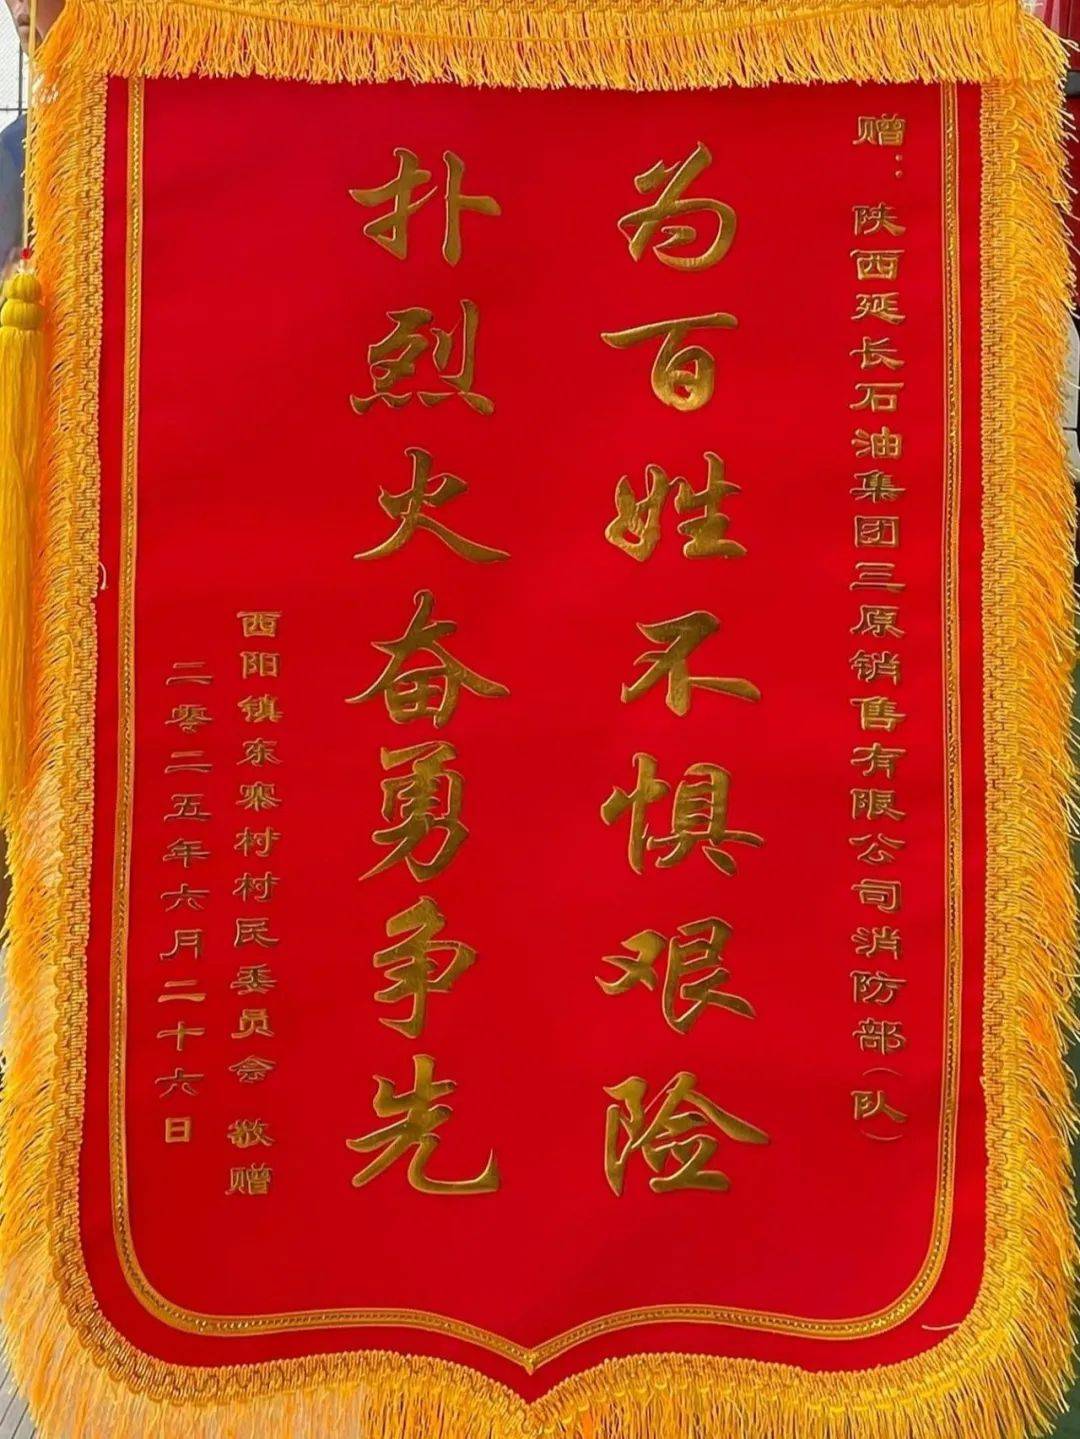 赠：陕西延长石油集团三原销售有限公司消防部（队）
为百姓不惧艰险
扑烈火奋勇争先
西阳镇东寨村村民委员会 敬赠
二零二五年六月二十六日